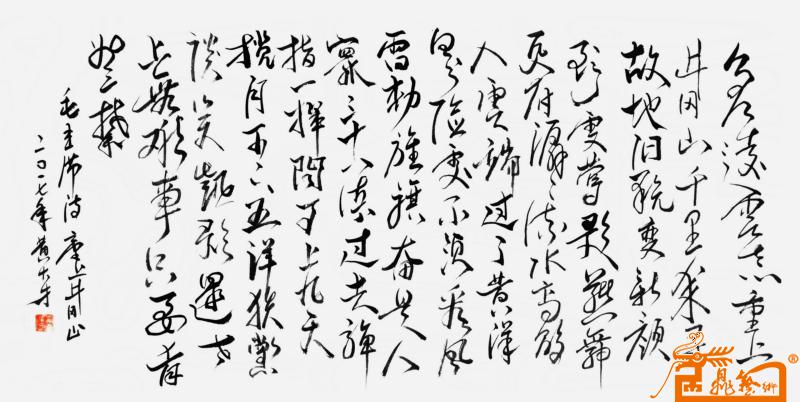 久有凌雲志重上
井冈山千里来寻
故地旧貌变新颜
到处莺歌燕舞
更有潺潺流水高路
入雲端过了黄洋
界险处不须看风
雷动旌旗奋是人
寰三十八年过去弹
指一挥间可上九天
揽月可下五洋捉鳖
谈笑凯歌还世
上无难事只要肯
登攀
毛主席诗 重上井冈山
二〇一七年